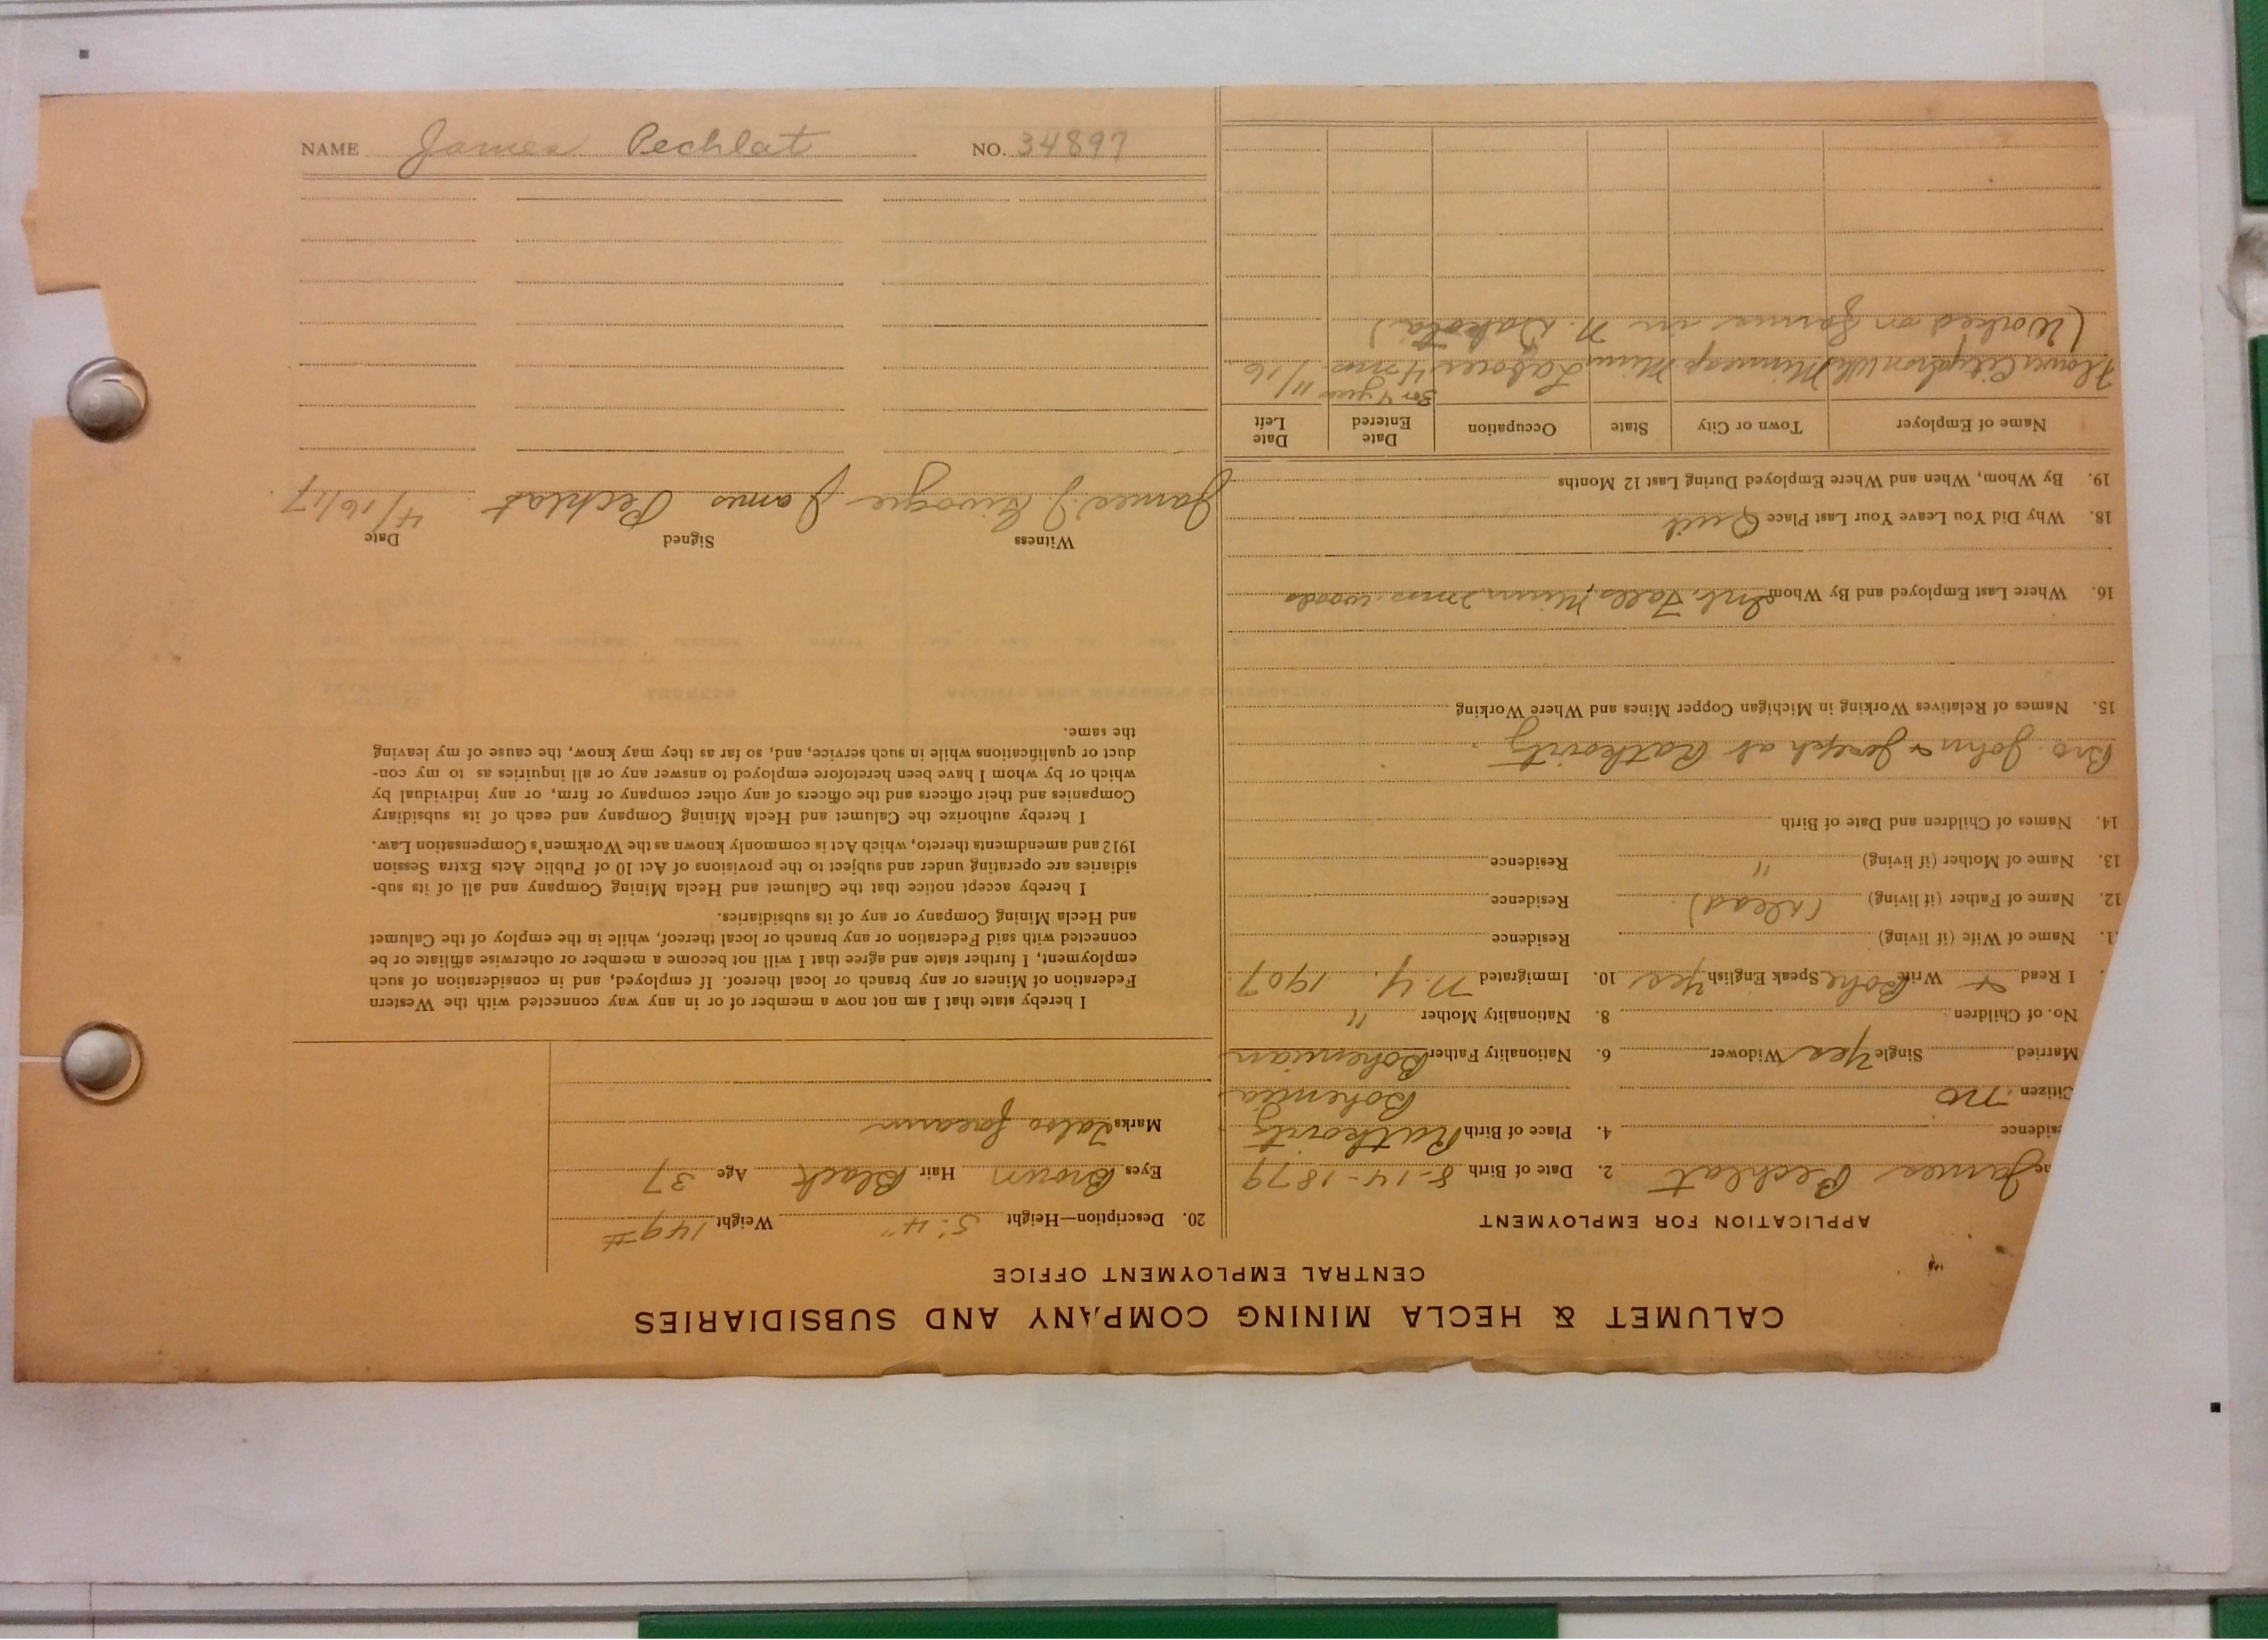 CALUMET & HECLA MINING COMPANY AND SUBSIDIARIES
CENTRAL EMPLOYMENT OFFICE
APPLICATION FOR EMPLOYMENT
James Pechlat 2. Date of Birth 8-14-1879
4. Place of Birth Ratkovitz
Citizen no Bohemia
Married Single Yes Widower 6. Nationality Father Bohemian
No. of Children 8. Nationality Mother "
I Read + Write Bohe Speak English Yes 10. Immigrated N.Y. 1907
Name of Wife (if living) Residence
12. Name of Father (if living) (dead) Residence
13. Name of Mother (if living) " Residence
14. Names of Children and Date of Birth
15. Names of Relatives Working in Michigan Copper Mines and Where Working
Bro. John & Joseph at Ratkovitz
16. Where Last Employed and By Whom Int. Falls, Minn. 2 mos. woods
18. Why Did You Leave Your Last Place Quit
19. By Whom, When and Where Employed During Last 12 Months
Name of Employer Town or City State Occupation Date Entered Date Left
Flower City Minneap Minn Laborer 4 mos. 11/16
(Worked on farms in N. Dakota)
20. Description—Height 5' 4" Weight 149 #
Eyes Brown Hair Black Age 37
Marks forearm
I hereby state that I am not now a member of or in any way connected with the Western
Federation of Miners or any branch or local thereof. If employed, and in consideration of such
employment, I further state and agree that I will not become a member or otherwise affiliate or be
connected with said Federation or any branch or local thereof, while in the employ of the Calumet
and Hecla Mining Company or any of its subsidiaries.
I hereby accept notice that the Calumet and Hecla Mining Company and all of its sub-
sidiaries are operating under and subject to the provisions of Act 10 of Public Acts Extra Session
1912 and amendments thereto, which Act is commonly known as the Workmen's Compensation Law.
I hereby authorize the Calumet and Hecla Mining Company and each of its subsidiary
Companies and their officers and the officers of any other company or firm, or any individual by
which or by whom I have been heretofore employed to answer any or all inquiries as to my con-
duct or qualifications while in such service, and, so far as they may know, the cause of my leaving
the same.
Witness Signed Date
James J James Pechlat 4/16/17
NAME James Pechlat NO. 34897